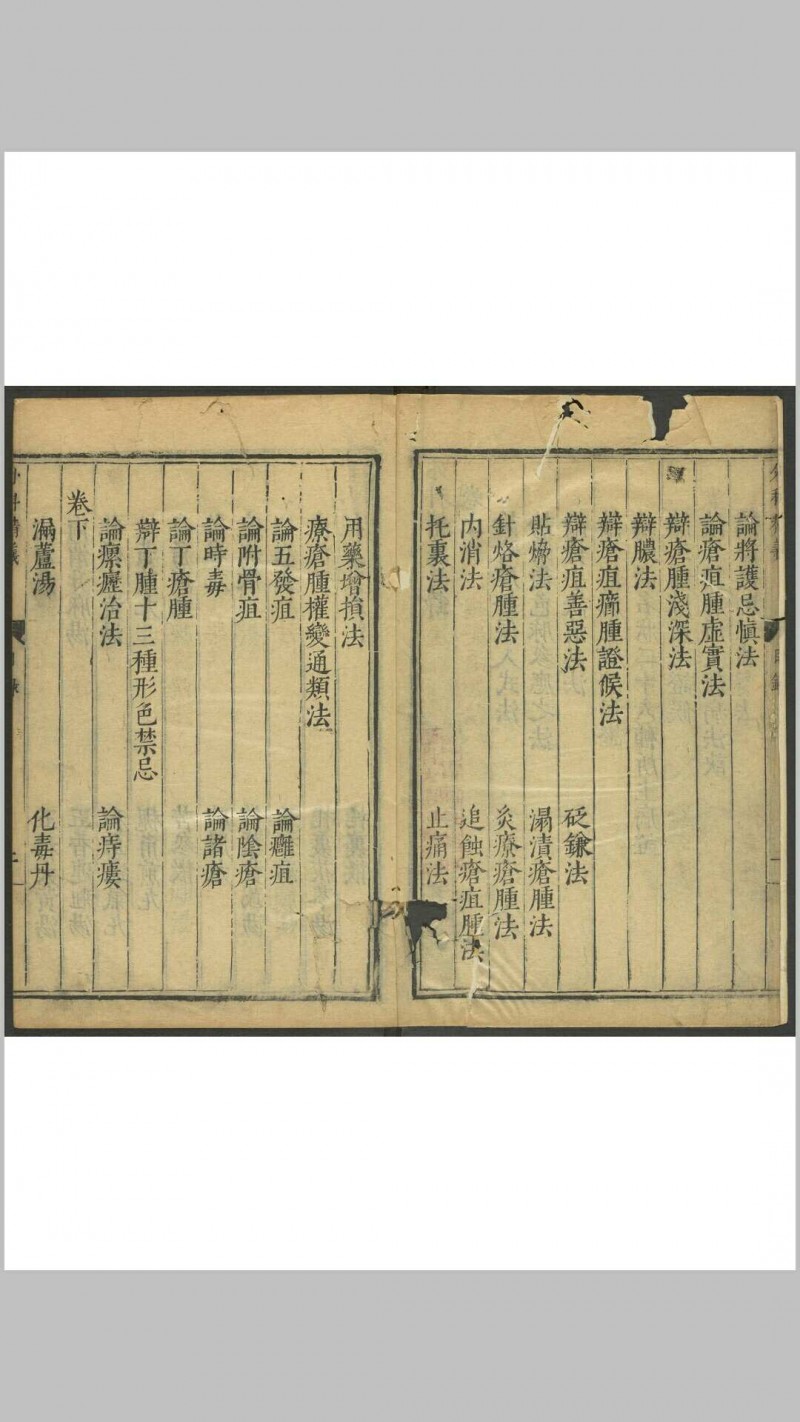 論將護忌愼法
論瘡疽腫虛實法
辯瘡腫淺深法
辯膿法
辯瘡疽癤腫證候法
辯瘡疽善惡法 砭鎌法
貼㷼法 溻漬瘡腫法
針烙瘡腫法 灸療瘡腫法
内消法 追蝕瘡疽腫法
托裏法 止痛法
用藥增損法
療瘡腫權變通類法
論五發疽 論癰疽
論附骨疽 論陰瘡
論時毒 論諸瘡
論丁瘡腫
辯丁腫十三種形色禁忌
論瘰癧治法 論痔瘻
卷下
漏蘆湯 化毒丹